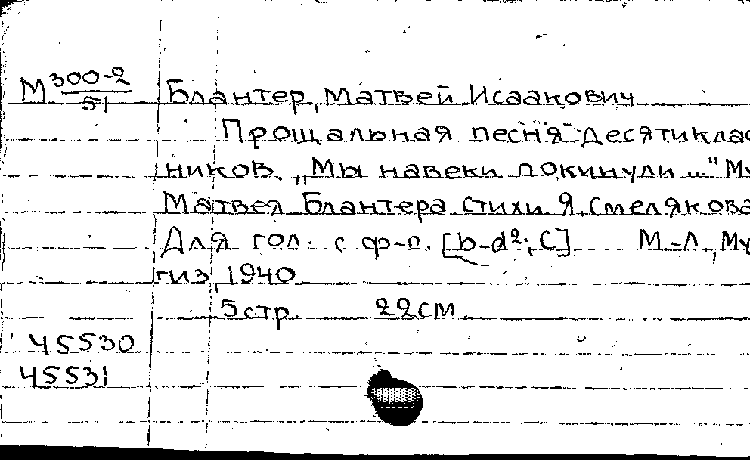 М 300-2/51 Блантер, Матвей Исаакович
Прощальная песня десятиклас
ников. „Мы навеки покинули..." Му
Матвея Блантера стихи Я. Смелякова
Для гол. с ф-п. [b-d²; C] М-Л, Му
гиз, 1940
5 стр. 22см
45530
45531